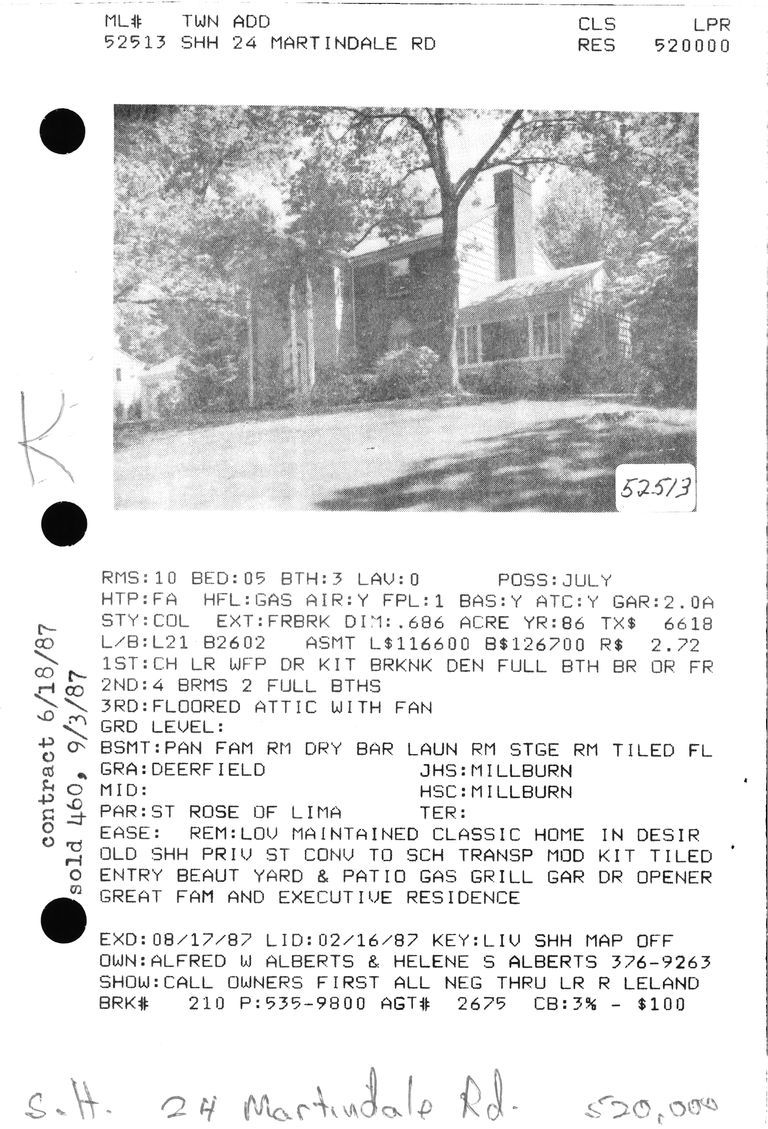 ML# TWN ADD CLS LPR
52513 SHH 24 MARTINDALE RD RES 520000
52513
K
RMS:10 BED:05 BTH:3 LAV:0 POSS:JULY
HTP:FA HFL:GAS AIR:Y FPL:1 BAS:Y ATC:Y GAR:2.0A
STY:COL EXT:FRBRK DIM:.686 ACRE YR:86 TX$ 6618
L/B:L21 B2602 ASMT L$116600 B$126700 R$ 2.72
1ST:CH LR WFP DR KIT BRKNK DEN FULL BTH BR OR FR
2ND:4 BRMS 2 FULL BTHS
3RD:FLOORED ATTIC WITH FAN
GRD LEVEL:
BSMT:PAN FAM RM DRY BAR LAUN RM STGE RM TILED FL
GRA:DEERFIELD JHS:MILLBURN
MID: HSC:MILLBURN
PAR:ST ROSE OF LIMA TER:
EASE: REM:LOV MAINTAINED CLASSIC HOME IN DESIR
OLD SHH PRIV ST CONV TO SCH TRANSP MOD KIT TILED
ENTRY BEAUT YARD & PATIO GAS GRILL GAR DR OPENER
GREAT FAM AND EXECUTIVE RESIDENCE
EXD:08/17/87 LID:02/16/87 KEY:LIV SHH MAP OFF
OWN:ALFRED W ALBERTS & HELENE S ALBERTS 376-9263
SHOW:CALL OWNERS FIRST ALL NEG THRU LR R LELAND
BRK# 210 P:535-9800 AGT# 2675 CB:3% - $100
contract 6/18/87
sold 460, 9/3/87
S.H. 24 Martindale Rd. 520,000